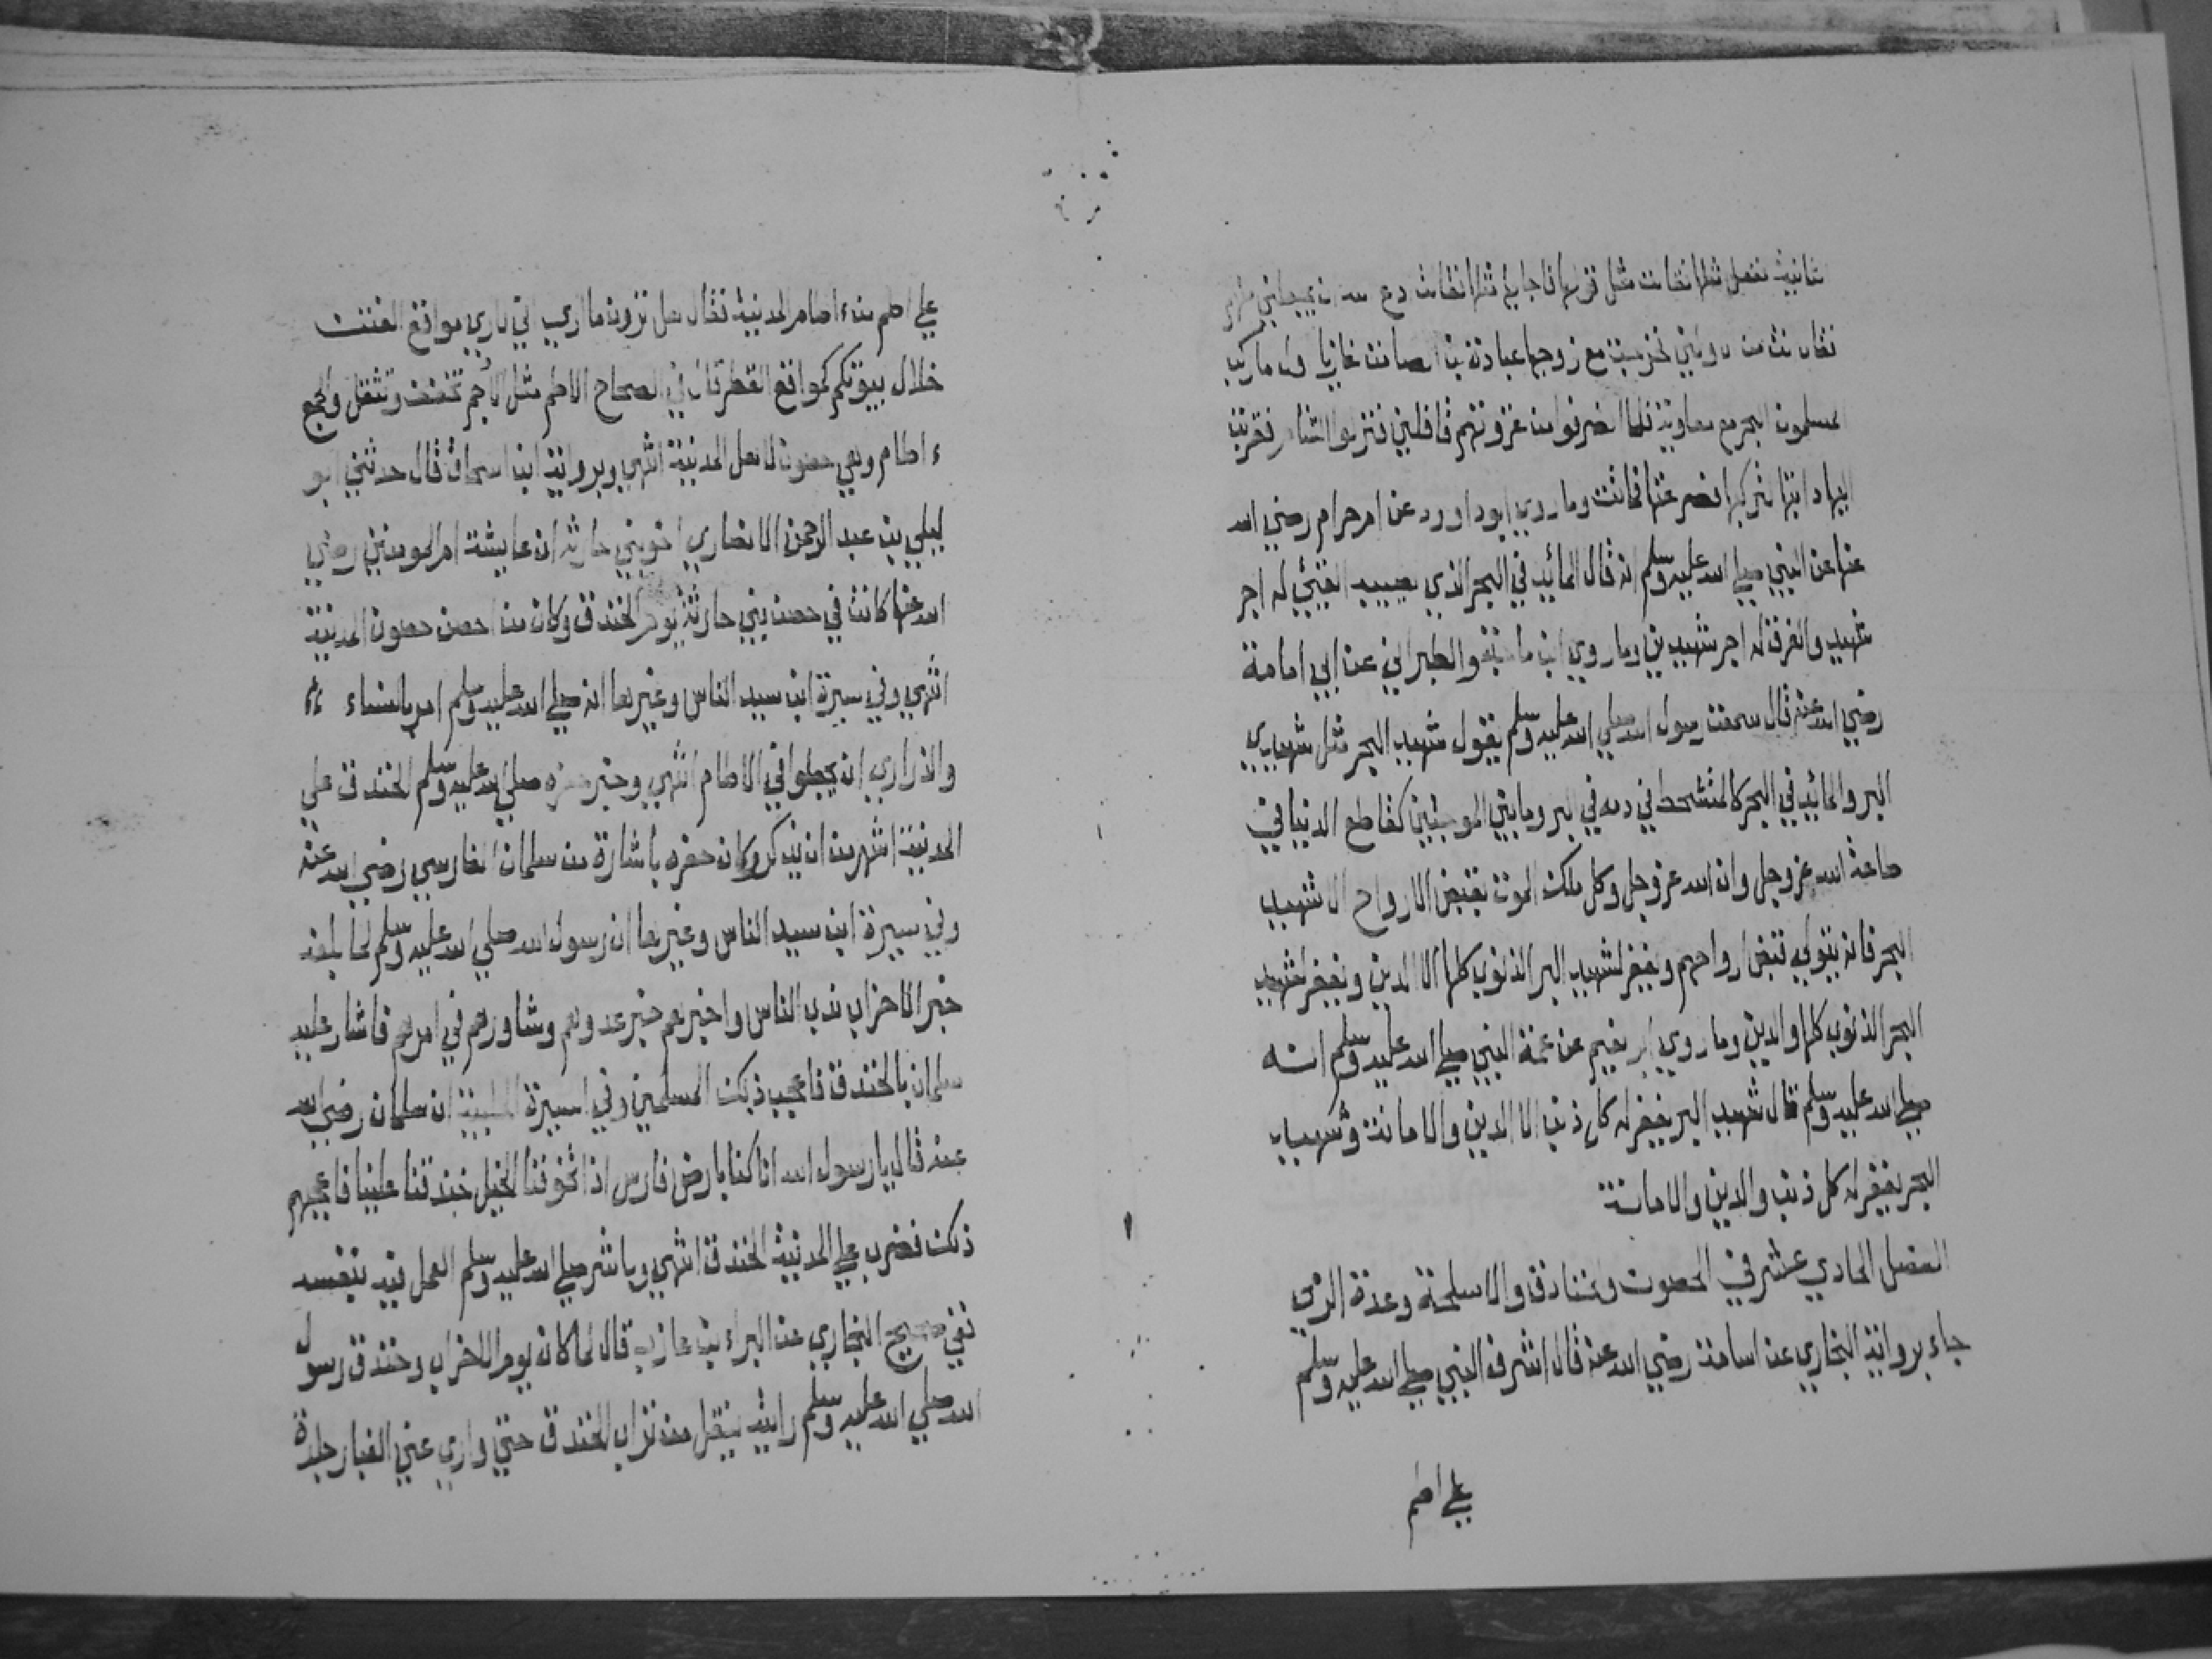 ثانية ففعل مثلها فقالت مثل قولها فاجابها مثلها فقالت ادع الله ان يجعلني منهم
فقال انت من الاولين فخرجت مع زوجها عبادة بن الصامت غازيا اول ما ركب
المسلمون البحر مع معاوية فلما انصرفوا من غزوتهم قافلين فنزلوا الشام فقربت
اليها دابة لتركبها فصرعتها فماتت وما روي ابو داورد عن ام حرام رضي الله
عنها عن النبي صلي الله عليه وسلم انه قال المائد في البحر الذي يصيبه القيئ له اجر
شهيد والغرق له اجر شهيدين وما روي ابن ماجه والطبراني عن ابي امامة
رضي الله عنه قال سمعت رسول الله صلي الله عليه وسلم يقول شهيد البحر مثل شهيدي
البر والمائد في البحر كالمتشحط في دمه في البر وما بين الموجتين كقاطع الدنيا في
طاعة الله عز وجل وان الله عز وجل وكل ملك الموت بقبض الارواح الا شهيد
البحر فانه يتولي قبض ارواحهم ويغفر لشهيد البر الذنوب كلها الا الدين ويغفر لشهيد
البحر الذنوب كلها والدين وما روي ابو نعيم عن عمة النبي صلي الله عليه وسلم انه
صلي الله عليه وسلم قال شهيد البر يغفر له كل ذنب الا الدين والامانة وشهيد
البحر يغفر له كل ذنب والدين والامانة
الفصل الحادي عشر في الحصون والخنادق والاسلحة وعدة الرمي
جاء برواية البخاري عن اسامة رضي الله عنه قال اشرف النبي صلي الله عليه وسلم
علي اطم
علي اطم من ءاطام المدينة فقال هل ترون ما اري اني لاري مواقع الفتن
خلال بيوتكم كمواقع القطر قال في الصحاح الاطم مثل الاجم تخفف وتثقل والجمع
ءاطام وهي حصون لاهل المدينة انتهي وبرواية ابن اسحاق قال حدثني ابو
ليلي بن عبد الرحمن الانصاري اخو بني حارثة ان عايشة ام المومنين رضي
الله عنها كانت في حصن بني حارثة يوم الخندق وكان من احصن حصون المدينة
انتهي وفي سيرة ابن سيد الناس وغيرها انه صلي الله عليه وسلم امر بالنساء
والذراري ان يجعلوا في الاطام انتهي وخبر حفره صلي الله عليه وسلم الخندق علي
المدينة اشهر من ان يذكر وكان حفره باشارة من سلمان الفارسي رضي الله عنه
وفي سيرة ابن سيد الناس وغيرها ان رسول الله صلي الله عليه وسلم لما بلغه
خبر الاحزاب ندب الناس واخبرهم خبر عدوهم وشاورهم في امرهم فاشار عليه
سلمان بالخندق فاعجب ذلك المسلمين وفي السيرة الحلبية ان سلمان رضي الله
عنه قال يا رسول الله انا كنا بارض فارس اذا تخوفنا الخيل خندقنا علينا فاعجبهم
ذلك فضرب علي المدينة الخندق انتهي وباشر صلي الله عليه وسلم العمل فيه بنفسه
ففي صحيح البخاري عن البراء بن عازب قال لما كان يوم الاحزاب وخندق رسول
الله صلي الله عليه وسلم رايته ينقل من تراب الخندق حتي واري عني الغبار جلدة